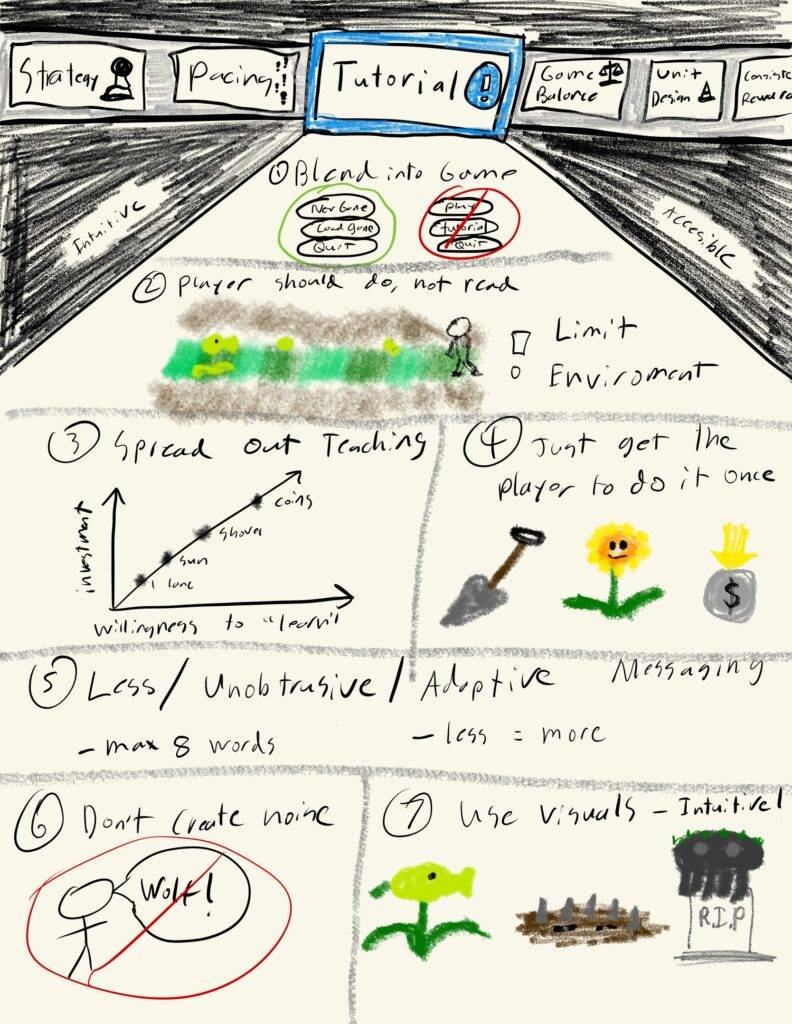 Strategy
Pacing!!!
Tutorial !
Game
Balance
Unit
Design
Consiste
Reward
Intuitive
Accesible
① Blend into Game
New Game
Load game
Quit
Play
tutorial
Quit
② Player should do, not read
Limit
Enviroment
③ Spread Out Teaching
investment
coins
shovel
sun
1 lane
willingness to "learn"
④ Just get the
player to do it once
$
⑤ Less / Unobtrusive / Adaptive Messaging
- max 8 words
- less = more
⑥ Don't create noise
Wolf!
⑦ Use visuals - Intuitive!
R.I.P